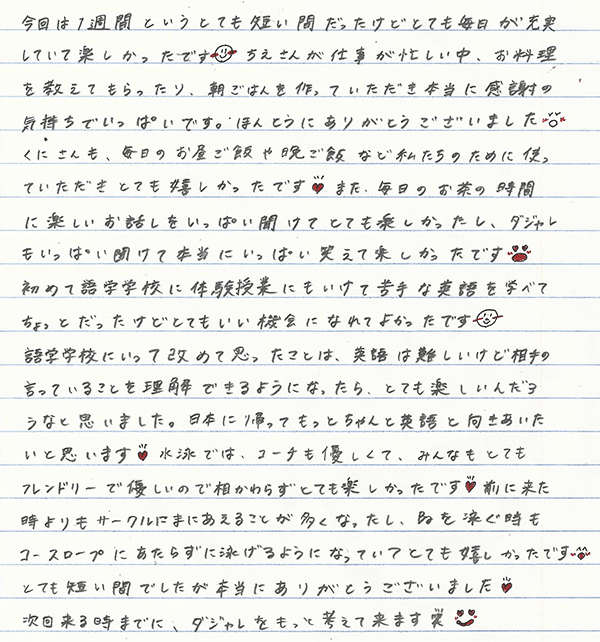 今回は1週間というとても短い間だったけどとても毎日が充実
していて楽しかったです
ちえさんが仕事が忙しい中、お料理
を教えてもらったり、朝ごはんを作っていただき本当に感謝の
気持ちでいっぱいです。ほんとうにありがとうございました
くにさんも、毎日のお昼ご飯や晩ご飯など私たちのために使っ
ていただきとても嬉しかったです また、毎日のお茶の時間
に楽しいお話しをいっぱい聞けてとても楽しかったし、ダジャレ
もいっぱい聞けて本当にいっぱい笑えて楽しかったです
初めて語学学校に体験授業にもいけて苦手な英語を学べて
ちょっとだったけどとてもいい機会になれてよかったです
語学学校にいって改めて思ったことは、英語は難しいけど相手の
言っていることを理解できるようになったら、とても楽しいんだろ
うなと思いました。日本に帰ってもっとちゃんと英語と向きあいた
いと思います 水泳では、コーチも優しくて、みんなもとても
フレンドリーで優しいので相かわらずとても楽しかったです 前に来た
時よりもサークルにまにあえることが多くなったし、Baを泳ぐ時も
コースロープにあたらずに泳げるようになっていてとても嬉しかったです
とても短い間でしたが本当にありがとうございました
次回来る時までに、ダジャレをもっと考えて来ます笑